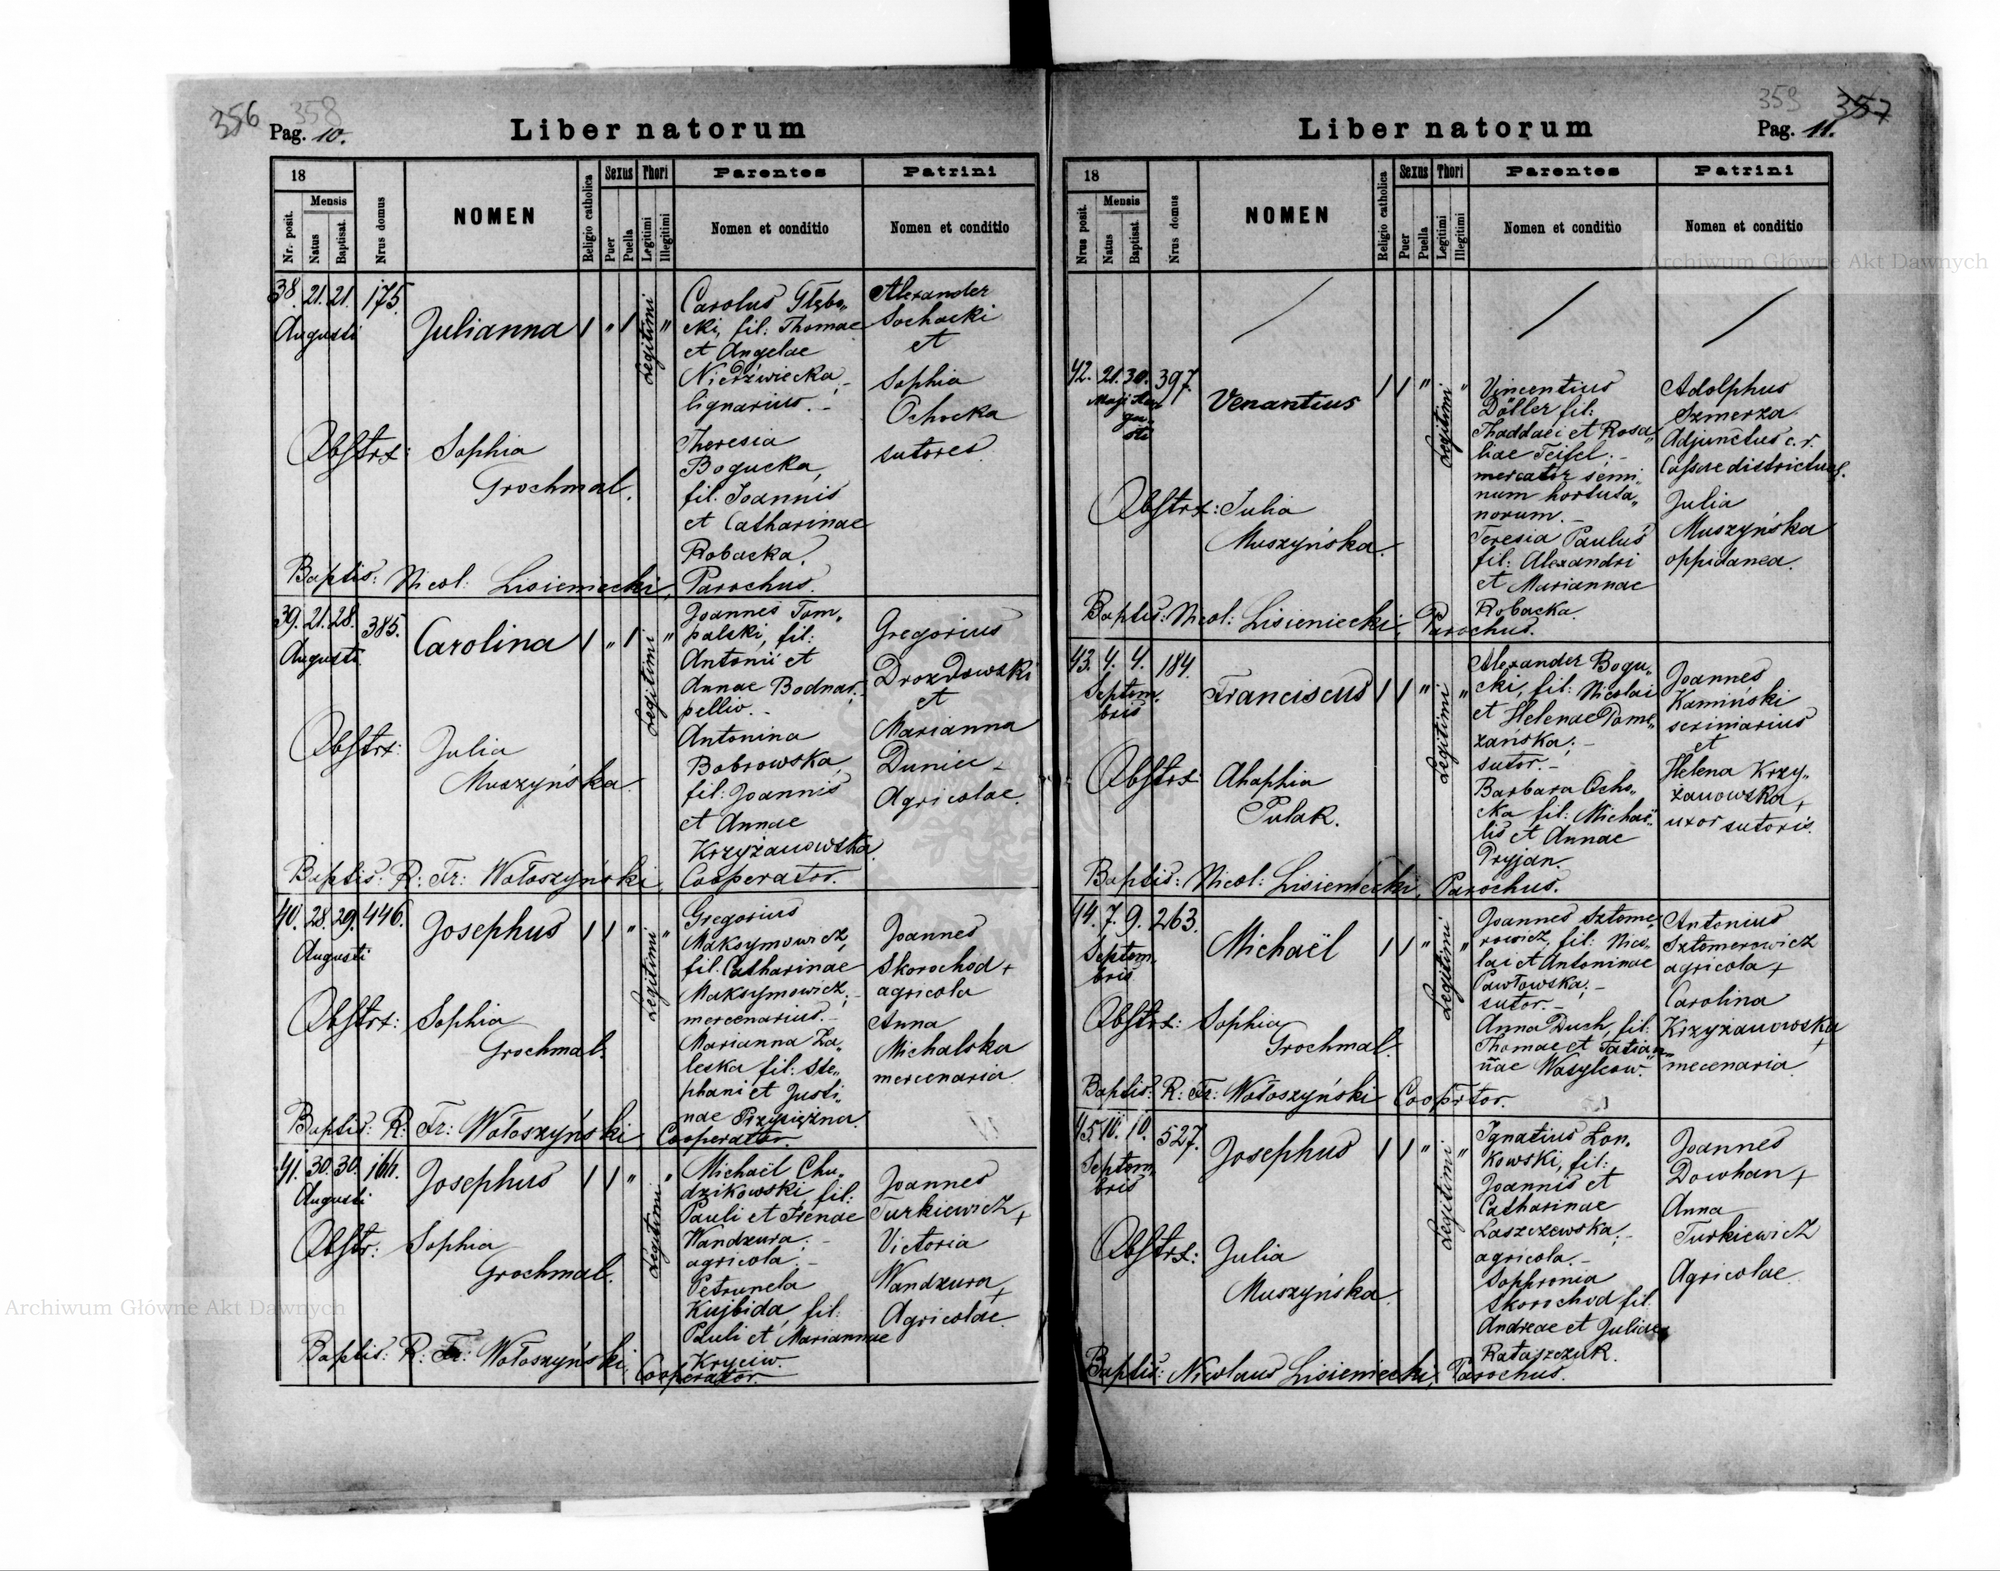 356 358
Pag. 10.
Liber natorum
18
Nr. posit.
Mensis
Natus
Baptisat.
Nrus domus
NOMEN
Religio catholica
Sexus
Puer
Puella
Thori
Legitimi
Illegitimi
Parentes
Nomen et conditio
Patrini
Nomen et conditio
38. 21. 21. 175.
Augusti
Julianna
Legitimi
Carolus Głębo„
cki, fil: Thomae
et Angelae
Niedźwiecka;
lignarius.
Theresia
Bogucka,
fil. Joannis
et Catharinae
Robacka.
Alexander
Sochacki
et
Sophia
Ochocka
sutores
Obstrx: Sophia
Grochmal.
Baptis: Nicol: Lisieniecki, Parochus.
39. 21. 28. 385.
Augusti
Carolina
Legitimi
Joannes Tom„
palski, fil:
Antonii et
Annae Bodnar,
pellio.
Antonina
Bobrowska
fil: Joannis
et Annae
Krzyżanowska
Gregorius
Drozdowski
et
Marianna
Duniec
Agricolae.
Obstrx: Julia
Muszyńska.
Baptis: R: Fr: Wołoszyński, Cooperator.
40. 28. 29. 446.
Augusti
Josephus
Legitimi
Gregorius
Maksymowicz,
fil. Catharinae
Maksymowicz;
mercenarius.
Marianna Za„
leska fil: Ste„
phani et Justi„
nae Przysiężna.
Joannes
Skorochod +
agricola
Anna
Michalska
mercenaria.
Obstrx: Sophia
Grochmal.
Baptis: R: Fr: Wołoszyński, Cooperator.
41. 30. 30.
Augusti
Josephus
Legitimi
Michaël Chu„
dzikowski, fil:
Pauli et Irenae
Wandzura;
agricola.
Petrunela
Kujbida, fil:
Pauli et Mariannae
Kryciw.
Joannes
Turkiewicz +
Victoria
Wandzura +
Agricolae.
Obstr: Sophia
Grochmal.
Baptis: R: Fr: Wołoszyński, Cooperator.
359 357
Pag. 11.
Liber natorum
18
Nrus posit.
Mensis
Natus
Baptisat.
Nrus domus
NOMEN
Religio catholica
Sexus
Puer
Puella
Thori
Legitimi
Illegitimi
Parentes
Nomen et conditio
Patrini
Nomen et conditio
42. 21. 30. 397.
Maji Au
gu„
sti
Venantius
Legitimi
Vincentius
Döller fil:
Thaddaei et Rosa„
liae Teifel;
mercator semi„
num hortula„
norum.
Teresia Paulus
fil: Alexandri
et Mariannae
Robacka.
Adolphus
Szmerza
Adjunctus c. r.
Cassae districtual.
Julia
Muszyńska
oppidanea.
Obstrx: Julia
Muszyńska.
Baptis: Nicol: Lisieniecki, Parochus.
43. 4. 4. 184.
Septem„
bris
Franciscus
Legitimi
Alexander Bogu„
cki, fil: Nicolai
et Helenae Dome„
zańska;
sutor.
Barbara Ocho„
cka fil: Michaë„
lis et Annae
Pryjan.
Joannes
Kamiński
scriniarius
et
Helena Krzy„
żanowska +
uxor sutoris.
Obstrx: Ahaphia
Pulak.
Baptis: Nicol: Lisieniecki, Parochus.
44. 7. 9. 263.
Septem„
bris
Michaël
Legitimi
Joannes Sztome„
rowicz, fil: Nico„
lai et Antoninae
Pawłowska;
sutor.
Anna Duch, fil:
Thomae et Tatian„
nae Wasylcow.
Antonius
Sztomerowicz
agricola +
Carolina
Krzyżanowska
+
mecenaria
Obstrx: Sophia
Grochmal.
Baptis: R: Fr: Wołoszyński Cooprtor.
45. 10. 10. 527.
Septem„
bris
Josephus
Legitimi
Ignatius Lon„
kowski, fil:
Joannis et
Catharinae
Laszczewska;
agricola.
Sophronia
Skorochod fil:
Andreae et Juliae
Rataszczuk.
Joannes
Dowhan +
Anna
Turkiewicz
Agricolae
Obstrx: Julia
Muszyńska.
Baptis: Nicolaus Lisieniecki, Parochus.
Archiwum Główne Akt Dawnych
Archiwum Główne Akt Dawnych